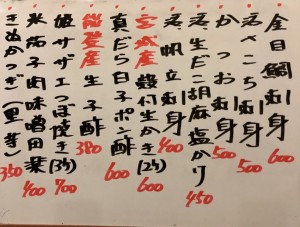 金目鯛刺身 600
活さごち刺身 500
かつお刺身 500
活帆立刺身 400
活生だこ胡麻塩かり 450
宮城産 殻付生かき(2ケ) 600
真だら白子ポン酢 600
能登産 生子酢 380
姫サザエつぼ焼き(3ケ) 700
米茄子肉味噌田楽 400
きぬかつぎ(里芋) 350